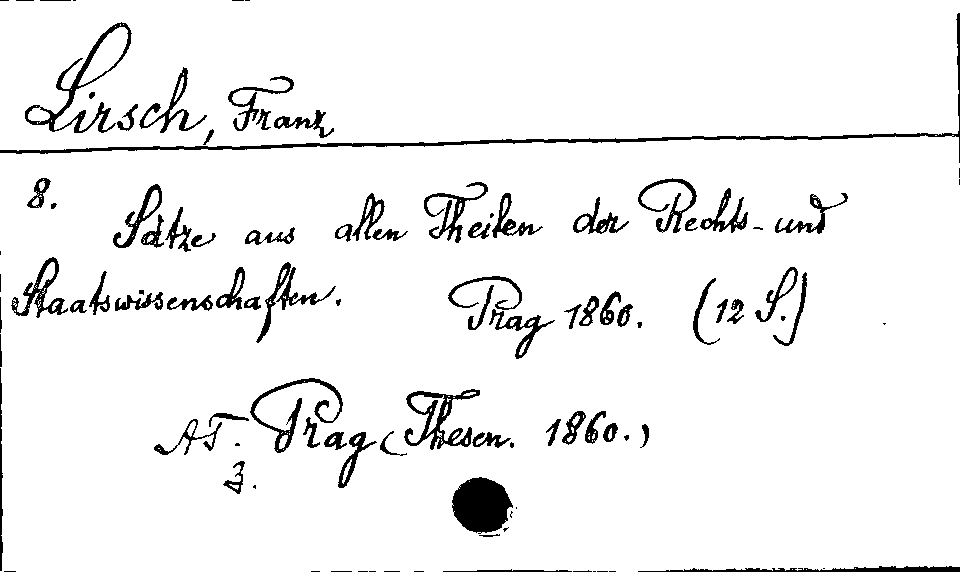 Lirsch, Franz
8.
Sätze aus allen Theilen der Rechts- und
Staatswissenschaften.
Prag 1860. (12 S.)
AT. Prag (Thesen. 1860.)
3.